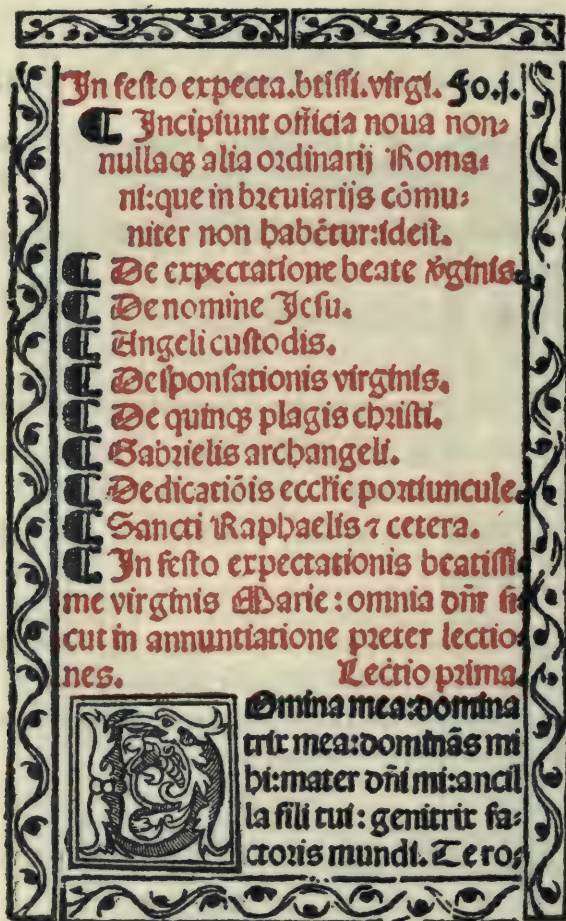 In festo expecta.btissi.virgi. Fo.j.
¶ Incipiunt officia noua non⸗
nullaqꝫ alia ordinarij Roma⸗
ni:que in breuiarijs cōmu⸗
niter non habētur:idest.
¶ De expectatione beate v̄ginis.
¶ De nomine Jesu.
¶ Angeli custodis.
¶ Desponsationis virginis.
¶ De quinqꝫ plagis christi.
¶ Gabrielis archangeli.
¶ Dedicatiōis ecclie portiuncule.
¶ Sancti Raphaelis ⁊ cetera.
¶ In festo expectationis beatissi
me virginis Marie : omnia dn̄r si
cut in annuntiatione preter lectio
nes. Lectio prima.
DOmina mea:domina
trix mea:dominās mi
hi:mater dn̄i mi:ancil
la fili tui : genitrix fa⸗
ctoris mundi. Te ro⸗